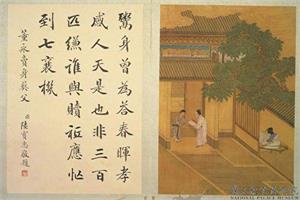 鬻身曾為答春暉孝
感人天是也非三百
匹縑誰與贖祗應忙
到七襄機
董永賣身葬父
國立故宮博物院
NATIONAL PALACE MUSEUM